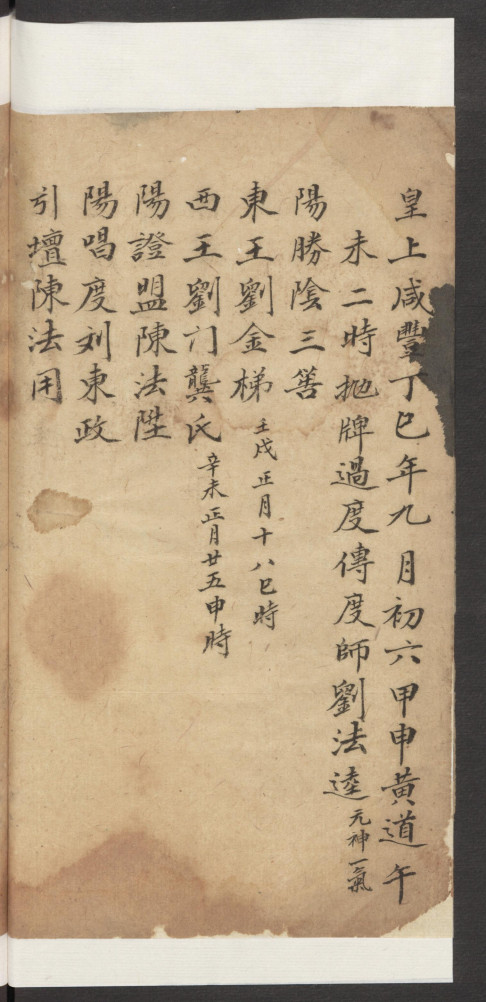 皇上咸豐丁巳年九月初六甲申黄道午
未二時抛牌過度傳度師劉法逵元神一氣
陽勝陰三筶
東王劉金梯壬戌正月十八巳時
西王劉门龔氏辛未正月廿五申時
陽證盟陳法陞
陽唱度刘東政
引壇陳法用